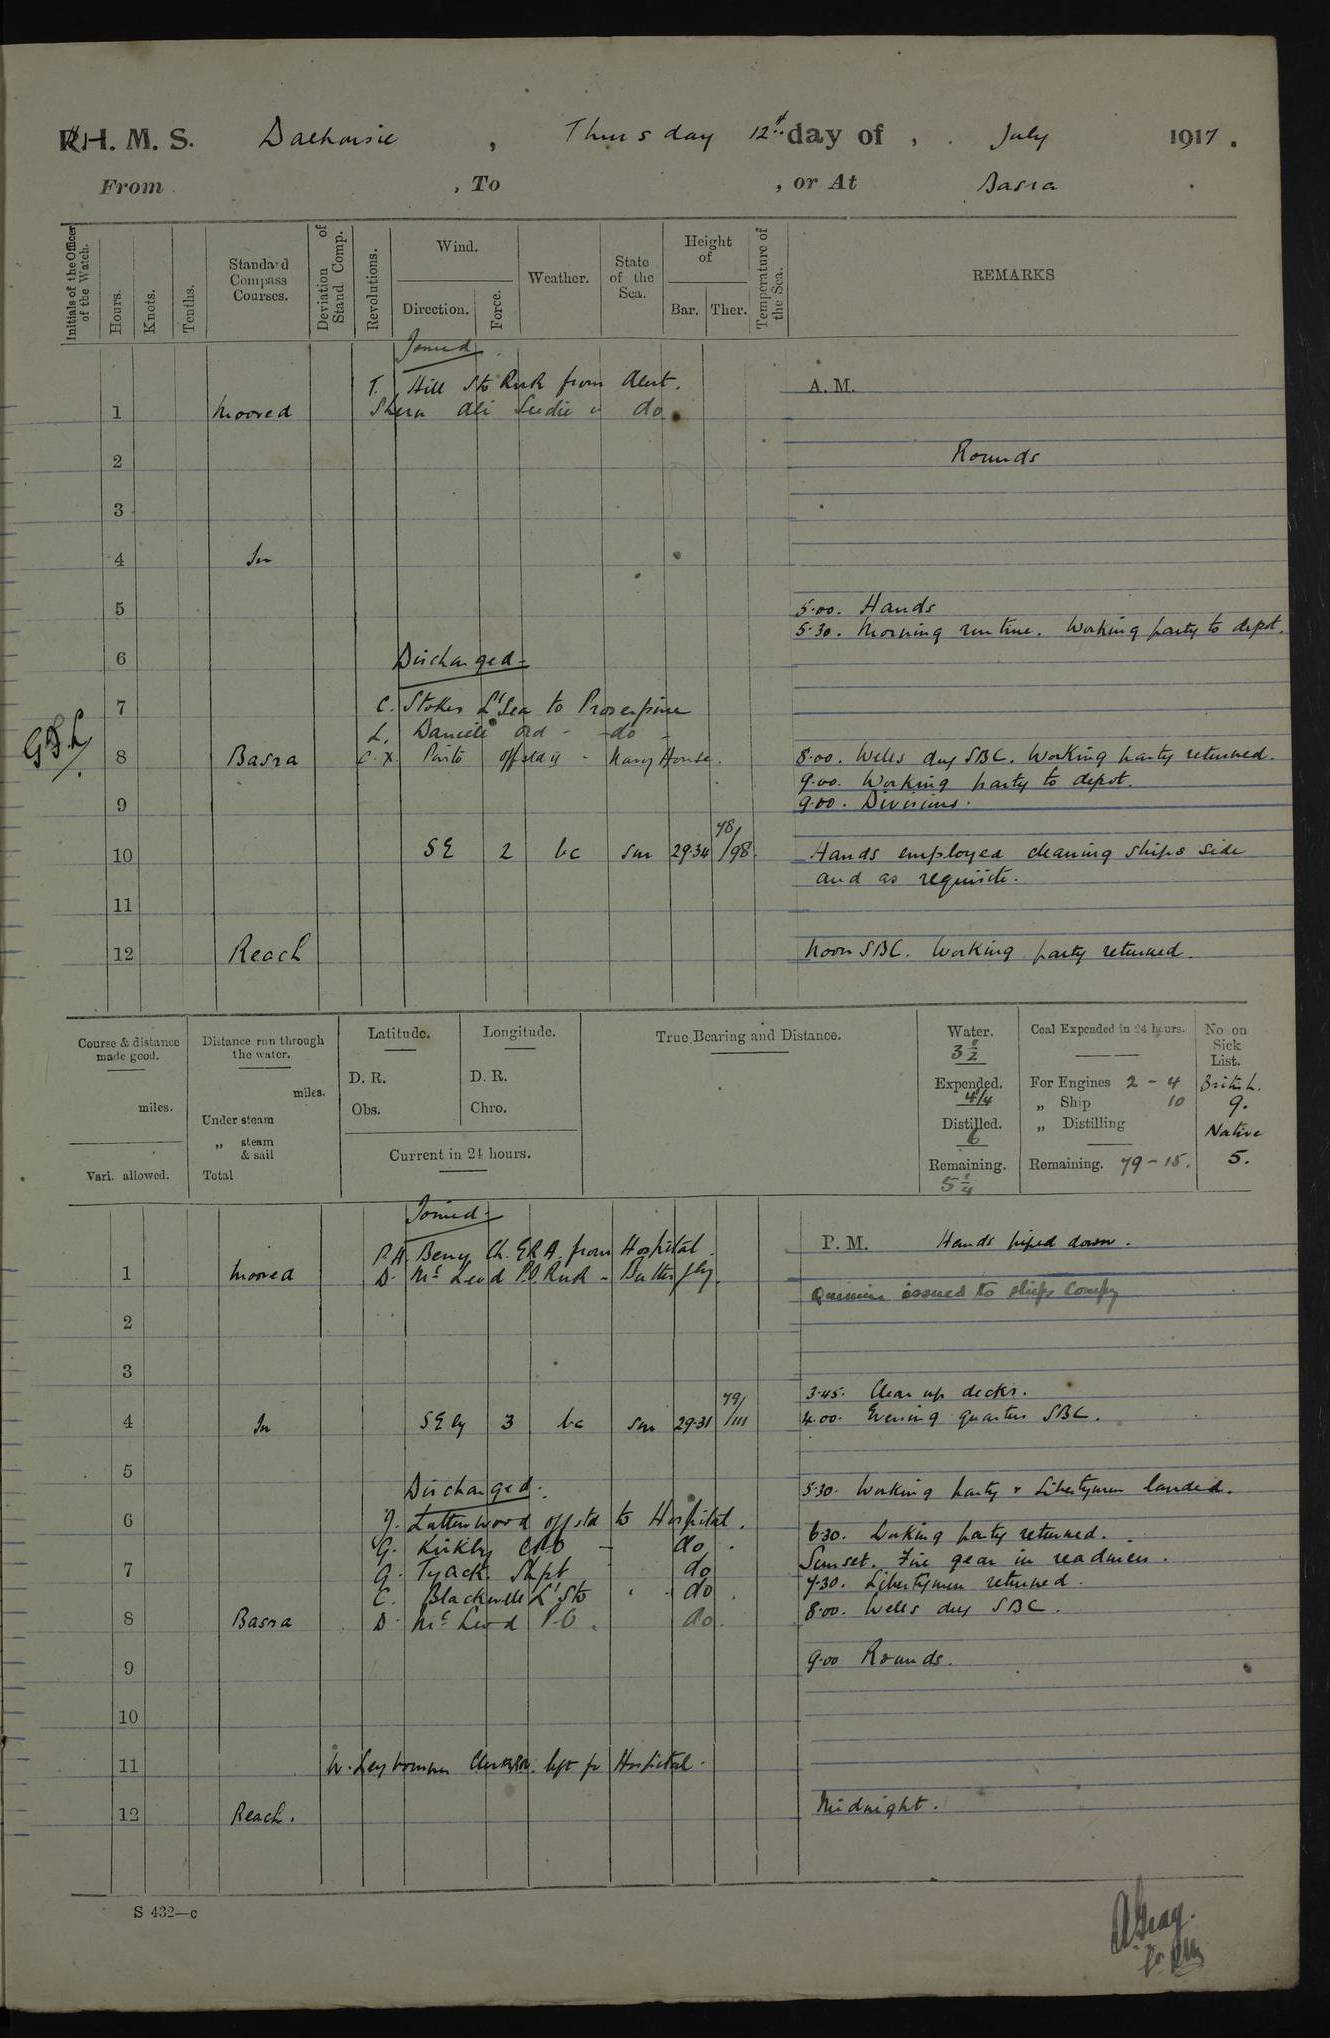 H. M. S. Dalhousie , Thursday 12th day of , July 1917 .
From , To , or At Basra .
Initials of the Officer of the Watch.
Hours.
Knots.
Tenths.
Standard Compass Courses.
Deviation of Stand Comp.
Revolutions.
Wind.
Direction.
Force.
Weather.
State of the Sea.
Height of
Bar.
Ther.
Temperature of the Sea.
REMARKS
Joined
T. Hill Sto RNR from Alert. A. M.
1 Moored Shera Ali Seedie " do
2 Rounds
3
4 In
5 5.00. Hands
5.30. Morning routine. Working party to depot.
6 Discharged
7 C. Stokes L'Sea to Proserpine
L. Daniels Ord - do -
8 Basra C. X. Pinto Off - Navy House. 8.00. Wells dry SBC. Working party returned.
9.00. Working party to depot.
9 9.00. Divisions.
10 SE 2 bc sm 29.34 78/98. Hands employed cleaning ships side
and as requisite.
11
12 Reach Noon SBC. Working party returned.
Course & distance made good.
miles.
Vari. allowed.
Distance run through the water.
miles.
Under steam
„ steam & sail
Total
Latitude.
D. R.
Obs.
Longitude.
D. R.
Chro.
Current in 24 hours.
True Bearing and Distance.
Water.
3 1/2
Expended.
4 1/4
Distilled.
6
Remaining.
5 1/4
Coal Expended in 24 hours.
For Engines 2 - 4
„ Ship 10
„ Distilling
Remaining. 79 - 15.
No on Sick List.
British.
9.
Native
5.
Joined
P.H. Berry Ch. ERA from Hospital. P. M. Hands piped down.
1 Moored D. McLeod P.O. RNR - Butterfly.
Quinine issued to ships Compy
2
3
3.45. Clear up decks.
4 In SE ly 3 bc sm 29.31 79/111 4.00. Evening quarters SBC.
5
Discharged. 5.30. Working party & Libertymen landed.
6 J. Lattenwood to Hospital.
6.30. Working party returned.
G. Kirkby CPO - do.
Sunset. Fire gear in readiness.
7 G. Tyack. Shpt do
7.30. Libertymen returned.
C. Blackwell L'Sto " do.
8 Basra D. McLeod P.O. do. 8.00. Wells dry SBC.
9 9.00 Rounds.
10
11 W. left for Hospital.
12 Reach. Midnight.
S 432—c
A Gray.